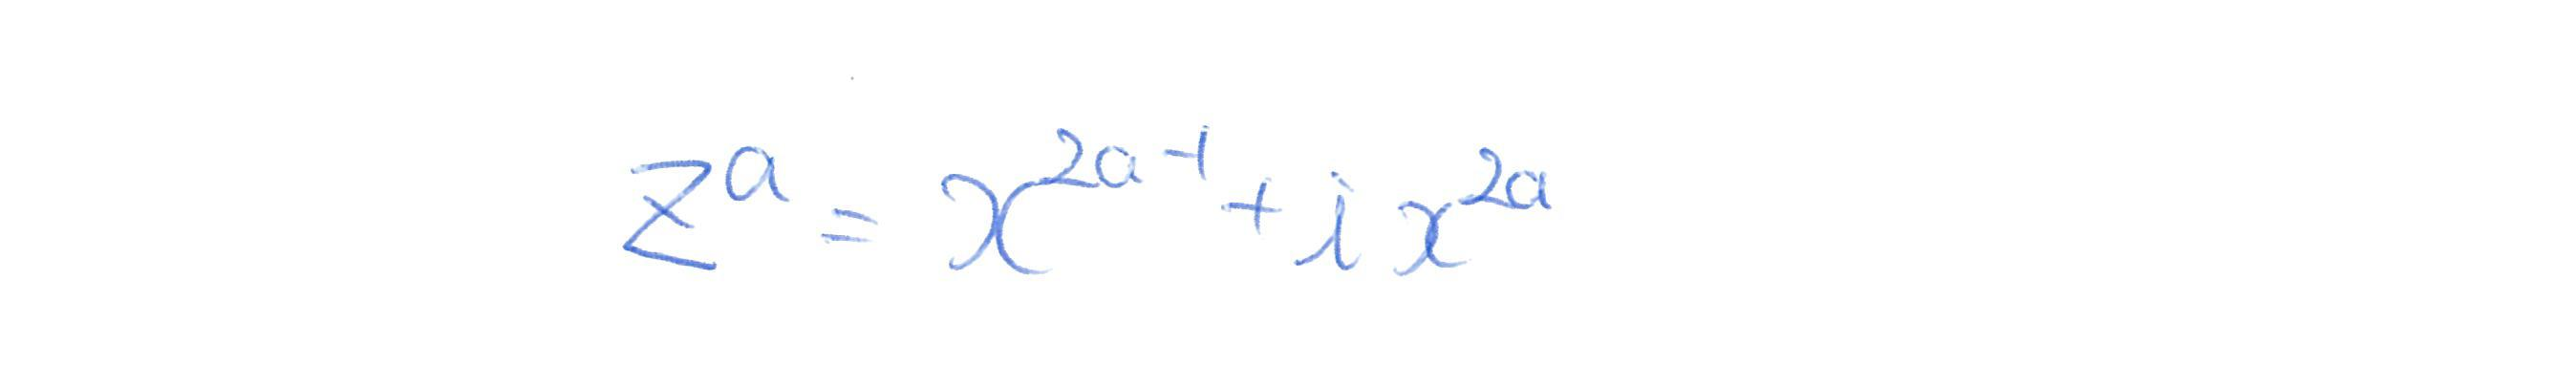 z^a = x^{2a-1} + i x^{2a}